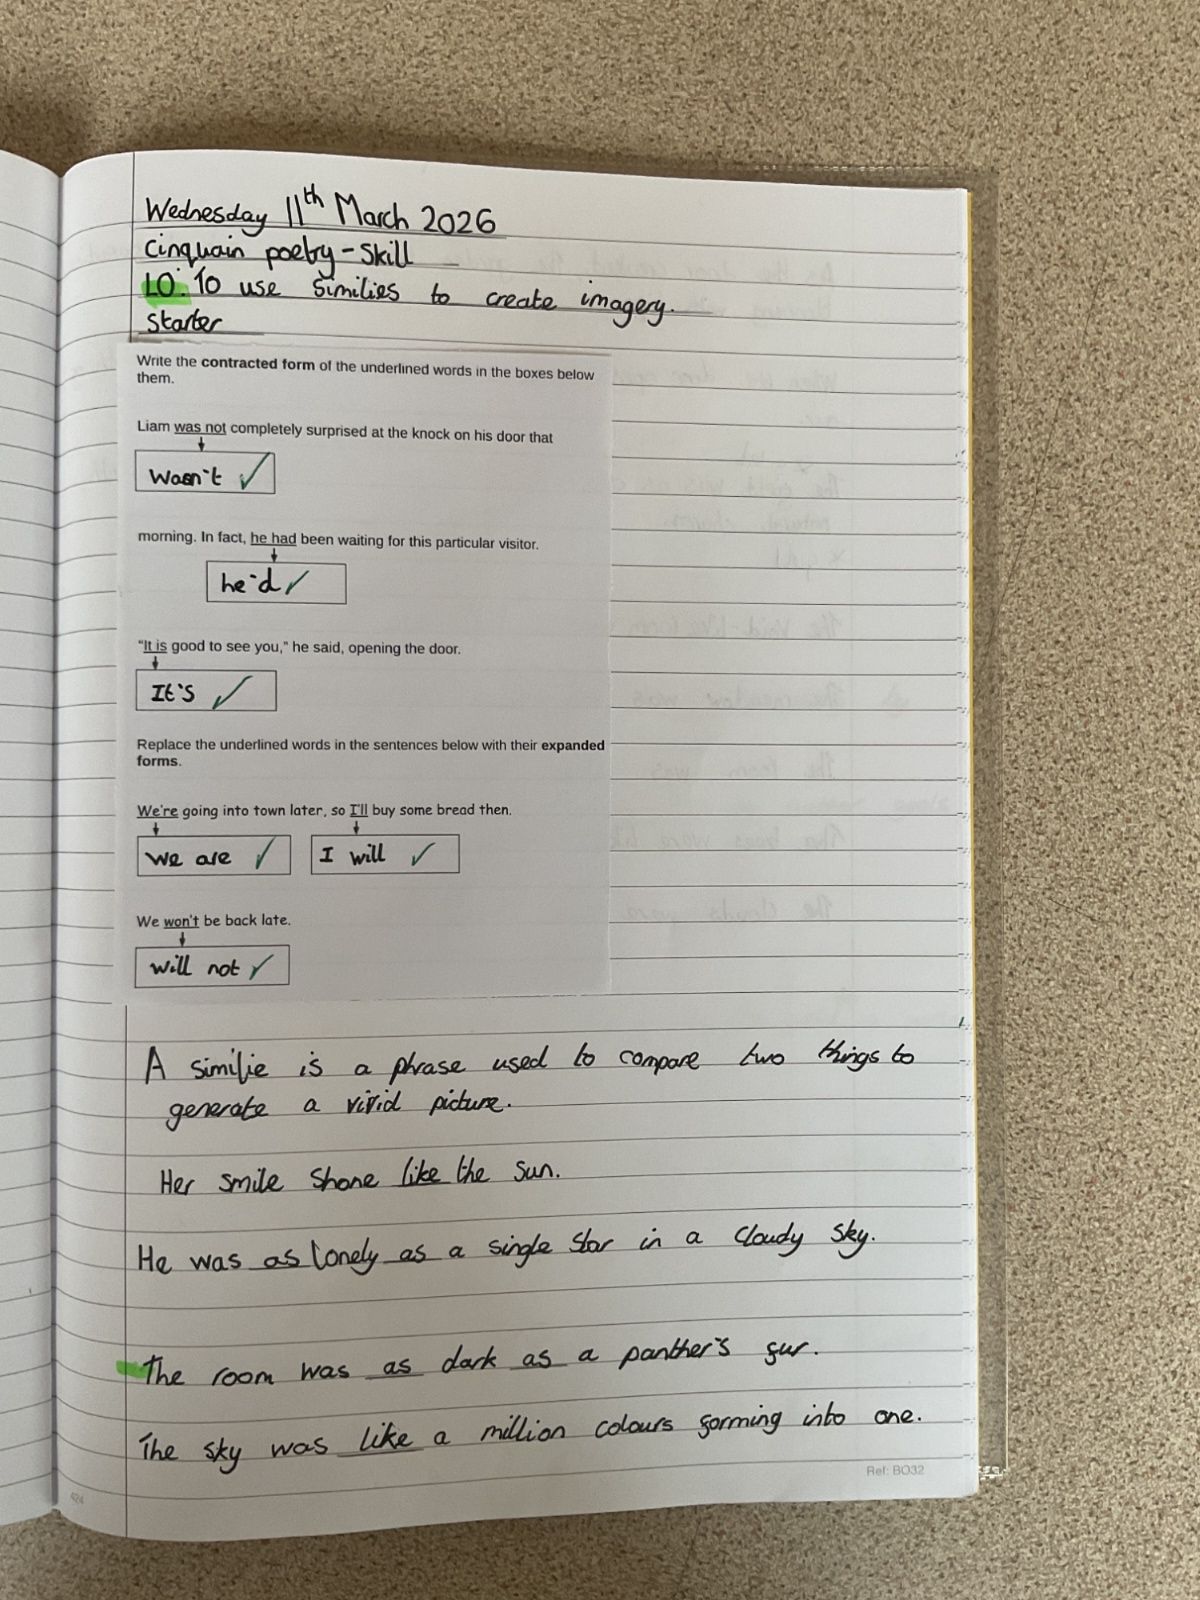 Wednesday 11th March 2026
Cinquain poetry - Skill
LO: To use similies to create imagery.
Starter
Write the contracted form of the underlined words in the boxes below
them.
Liam was not completely surprised at the knock on his door that
wasn't
morning. In fact, he had been waiting for this particular visitor.
he'd
"It is good to see you," he said, opening the door.
It's
Replace the underlined words in the sentences below with their expanded
forms.
We're going into town later, so I'll buy some bread then.
we are I will
We won't be back late.
will not
A similie is a phrase used to compare two things to
generate a vivid picture.
Her smile shone like the sun.
He was as lonely as a single star in a cloudy sky.
The room was as dark as a panther's fur.
The sky was like a million colours forming into one.
Ref: BO32